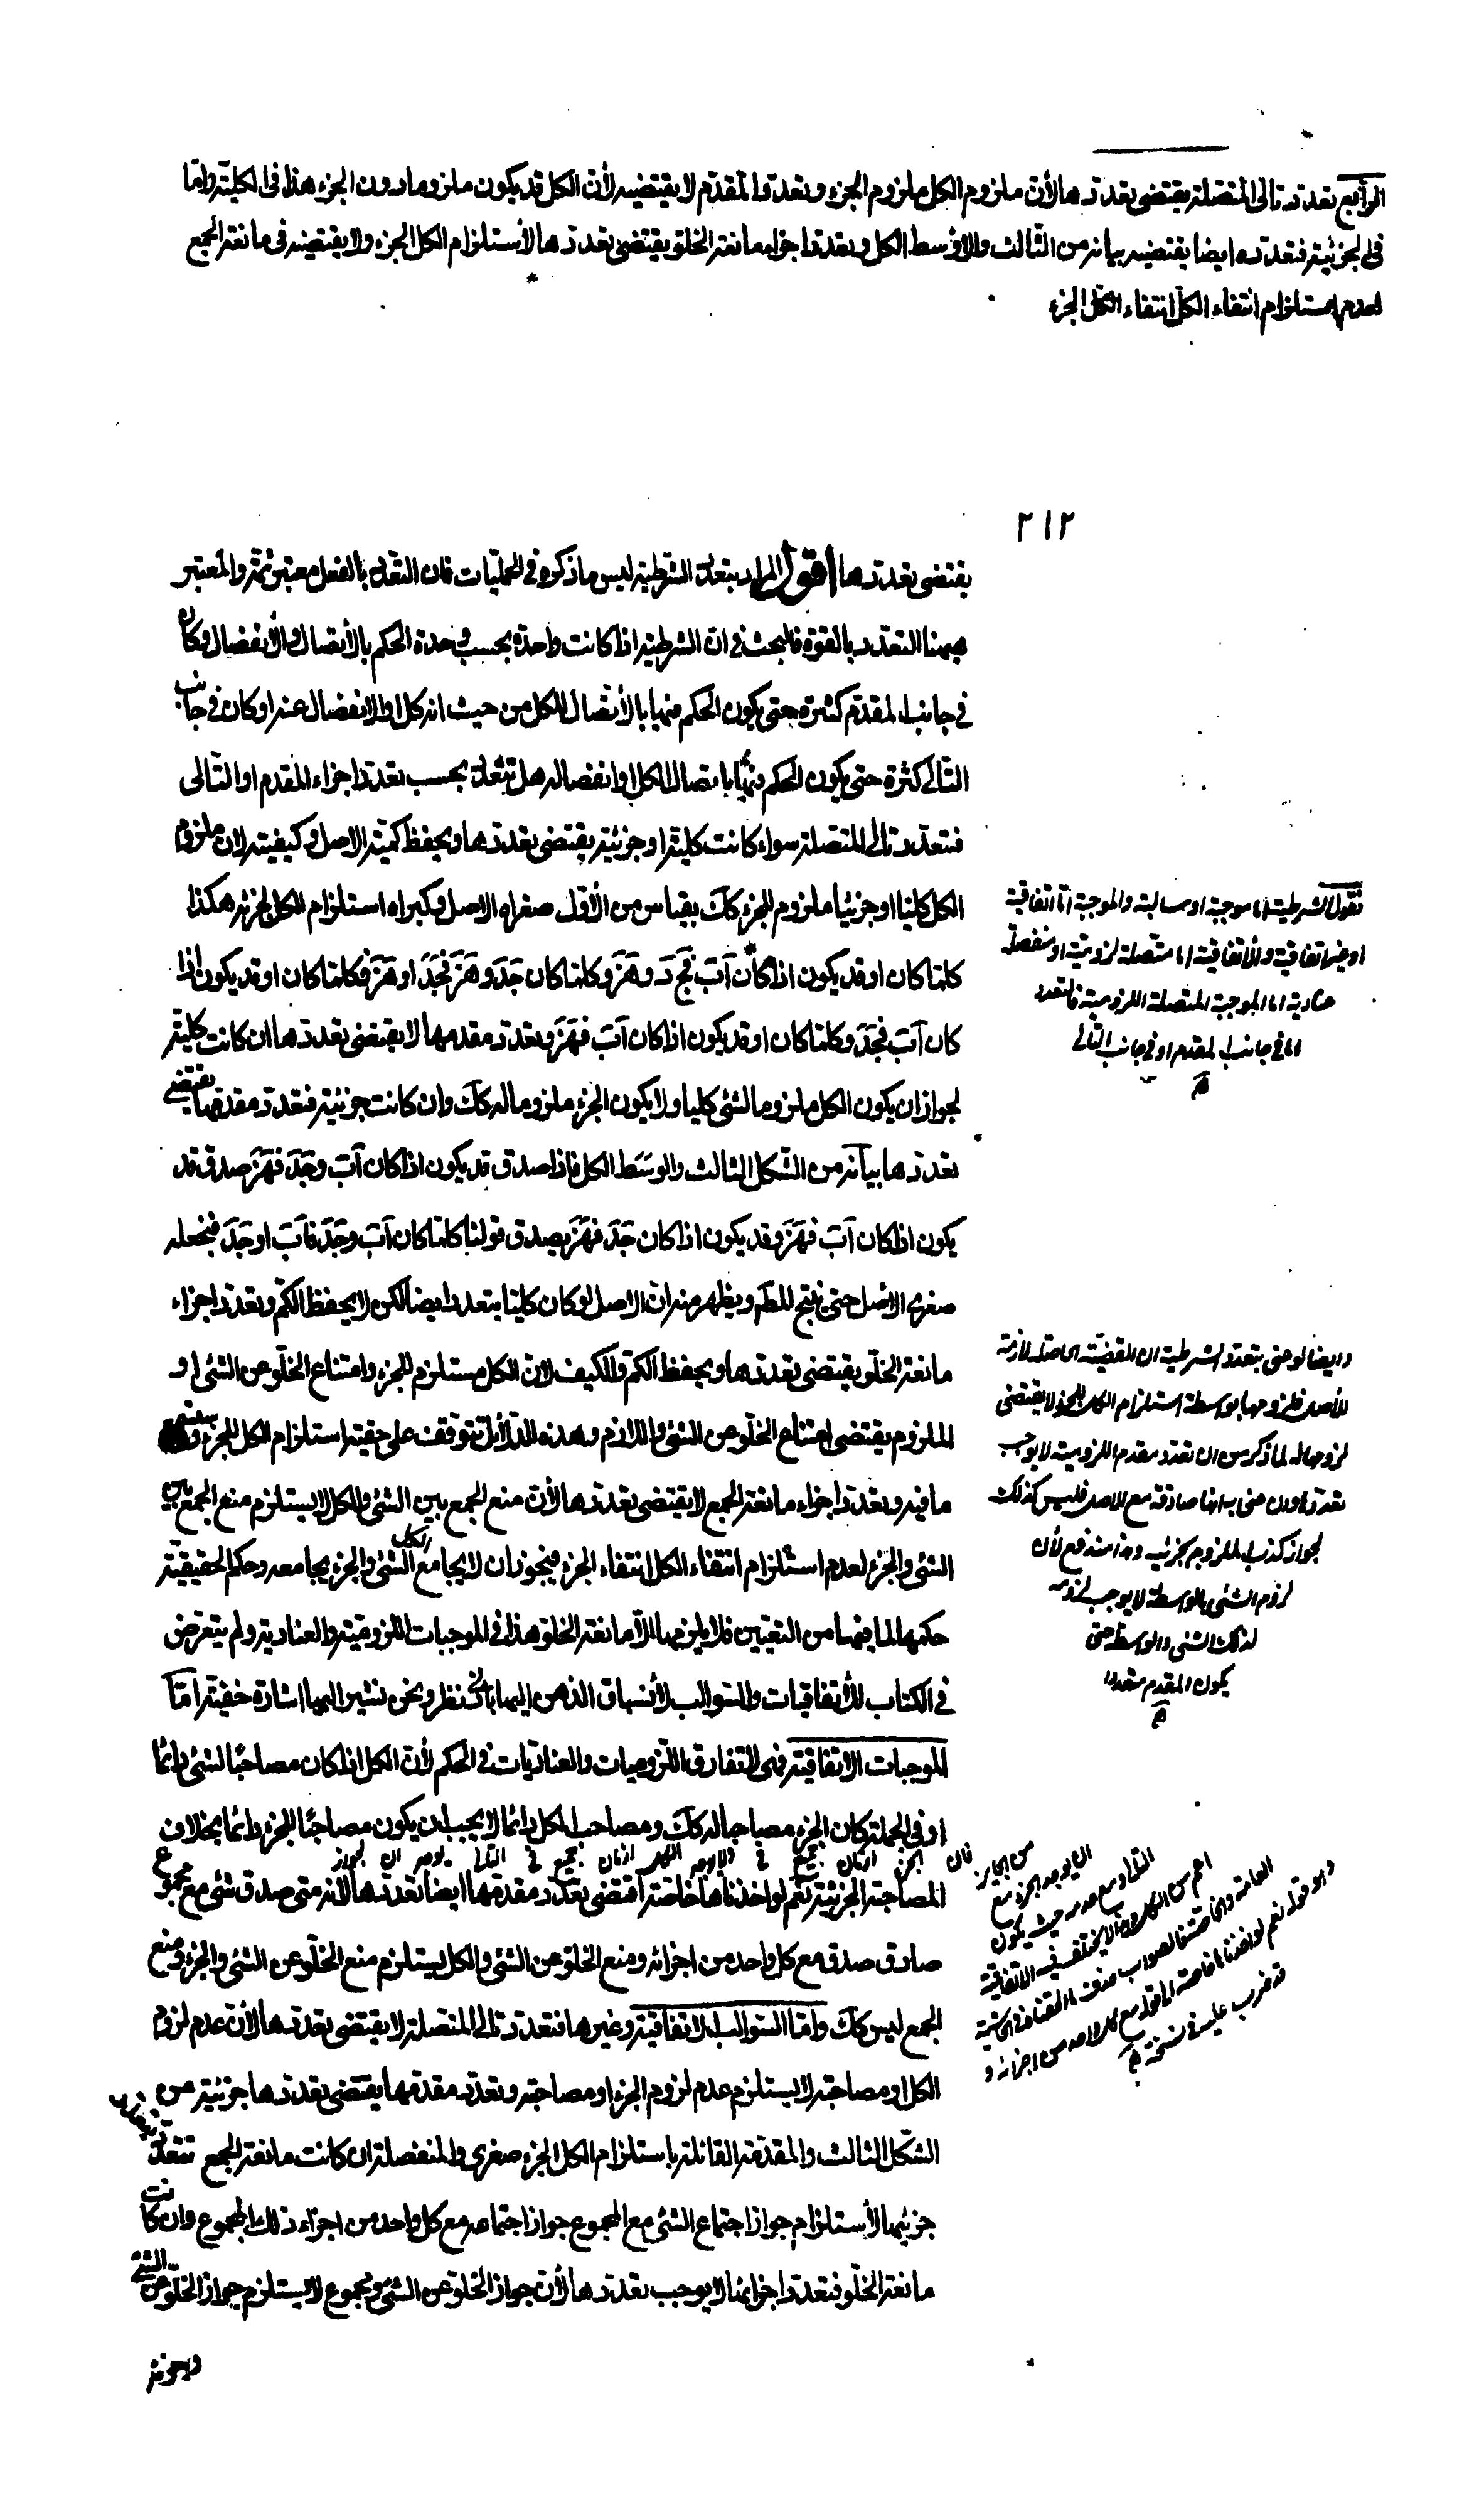 الرابع تعدد تالى المتصلة يقتضى تعددها لأن ملزوم الكل ملزوم الجزء وتعدد المقدم لا يقتضيه لأن الكل قد يكون ملزوما دون الجزء هذا فى الكلية واما
فى الجزئية فتعدده ايضا يقتضيه بيانه من الثالث والاوسط الكل وتعدد اجزاء مانعة الخلو يقتضى تعددها لأستلزام الكل الجزء ولا يقتضيه فى مانعة الجمع
لعدم استلزام انتفاء الكل انتفاء الجزء
٢١٢
يقتضى تعددها اقول المراد بتعدد الشرطية ليس ما ذكره فى الحمليات فان التعدد بالفعل معتبر ثمة والمعتبر
ههنا التعدد بالقوة فالبحث فى ان الشرطية اذا كانت واحدة بحسب وحدة الحكم بالأتصال والأنفصال وكان
فى جانب المقدم كثرة حتى يكون الحكم فيها بالأتصال للكل من حيث انه كل او الانفصال عنه او كان فى جانب
التالى كثرة حتى يكون الحكم فيها باتصال الكل او انفصاله هل تتعدد بحسب تعدد اجزاء المقدم او التالى
فتعدد تالى المتصلة سواء كانت كلية او جزئية يقتضى تعددها ويحفظ كمية الاصل وكيفيته لان ملزوم
الكل كليا او جزئيا ملزوم للجزء كك بقياس من الأول صغراه الاصل وكبراه استلزام الكل لجزئه هكذا
كلما كان او قد يكون اذا كان آب فجد وهز وكلما كان جد وهز فجد او هز فكلما كان او قد يكون اذا
كان آب فجد وكلما كان او قد يكون اذا كان آب فهز وتعدد مقدمها لا يقتضى تعددها ان كانت كلية
لجواز ان يكون الكل ملزوما لشئ كليا ولا يكون الجزء ملزوما له كك وان كانت جزئية فتعدد مقدمها يقتضى
تعددها بيانه من الشكل الثالث والوسط الكل فاذا صدق قد يكون اذا كان آب وجد فهز صدق قد
يكون اذا كان آب فهز وقد يكون اذا كان جد فهز بصدق قولنا كلما كان آب وجد فآب او جد فنجعله
صغرى الاصل حتى ينتج المط ويظهر منه ان الاصل لو كان كليا يتعدد ايضا لكن لا يحفظ الكم وتعدد اجزاء
مانعة الخلو يقتضى تعددها ويحفظ الكم والكيف لان الكل مستلزم للجزء وامتناع الخلو عن الشئ او
الملزوم يقتضى امتناع الخلو عن الشئ واللازم وهذه الدلائل تتوقف على حقية استلزام الكل للجزء
ما فيه وتعدد اجزاء مانعة الجمع لا يقتضى تعددها لأن منع الجمع بين الشئ والكل لا يستلزم منع الجمع بين
الشئ والجزء لعدم استلزام انتفاء الكل انتفاء الجزء فيجوز ان لا يجامع الكل الشئ والجزء يجامعه وحكم الحقيقية
حكمهما لما فيها من التعيين فلا يلزمها الا مانعة الخلو هذا فى الموجبات اللزومية والعنادية ولم يتعرض
فى الكتاب للأتفاقيات والسوالب لأنسياق الذهن اليها بأدنى نظر ونحن نشير اليها اشارة خفية اما
الموجبات الاتفاقية فهى لا تفارق اللزوميات والعناديات فى الحكم لأن الكل اذا كان مصاحبا لشئ دائما
او فى الجملة كان الجزء مصاحبا له كك ومصاحب الكل دائما لا يجب ان يكون مصاحبا للجزء دائما بخلاف
المصاحبة الجزئية نعم لو اخذناها خاصة اقتضى تعدد مقدمها ايضا تعددها لأنه متى صدق شئ مع مجموع
صادق صدق مع كل واحد من اجزائه ومنع الخلو عن الشئ والكل يستلزم منع الخلو عن الشئ والجزء ومنع
الجمع ليس كك واما السوالب الاتفاقية وغيرها فتعدد تالى المتصلة لا يقتضى تعددها لأن عدم لزوم
الكل او مصاحبته لا يستلزم عدم لزوم الجزء او مصاحبته وتعدد مقدمها يقتضى تعددها جزئية من
الشكل الثالث والمقدمة القائلة باستلزام الكل الجزء صغرى والمنفصلة ان كانت مانعة الجمع تتعدد
جزئيها لأستلزام جواز اجتماع الشئ مع المجموع جواز اجتماعه مع كل واحد من اجزاء ذلك المجموع وان كانت
مانعة الخلو فتعدد اجزائها لا يوجب تعددها لأن جواز الخلو عن الشئ ومجموع لا يستلزم جواز الخلو عن الشئ
وجزئه
نقول الشرطية اما موجبة او سالبة والموجبة اما اتفاقية
او غير اتفاقية والأتفاقية اما متصلة لزومية او منفصلة
عنادية اما الموجبة المتصلة اللزومية فالتعدد
اما فى جانب المقدم او فى جانب التالى
وايضا لو عنى بتعدد الشرطية ان القضية الحاصلة لازمة
للأصل فلزومها بواسطة استلزام الكل للجزء لا يقتضى
لزومها له لما ذكر من ان تعدد مقدم اللزومية لا يوجب
تعددها وان عنى به انها صادقة مع الاصل فليس كذلك
لجواز كذب الملزوم بجزئيه وهذا مندفع لأن
لزوم الشئ بالواسطة لا يوجب لزومه
لذلك الشئ والواسطة حتى
يكون المقدم متعددا